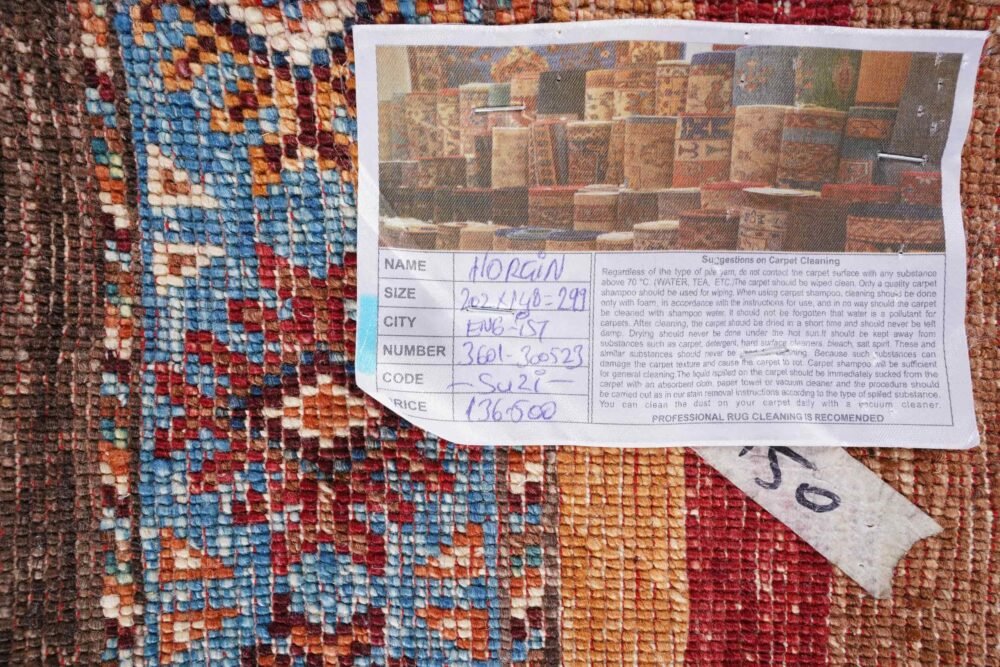 NAME HORGIN
SIZE 202 x 148 = 299
CITY ENG-IST
NUMBER 3601-300523
CODE -SUZI-
RICE 136-500
Suggestions on Carpet Cleaning
Regardless of the type of pile yarn, do not contact the carpet surface with any substance
above 70 °C. (WATER, TEA, ETC.)The carpet should be wiped clean. Only a quality carpet
shampoo should be used for wiping. When using carpet shampoo, cleaning should be done
only with foam, in accordance with the instructions for use, and in no way should the carpet
be cleaned with shampoo water. It should not be forgotten that water is a pollutant for
carpets. After cleaning, the carpet should be dried in a short time and should never be left
damp. Drying should never be done under the hot sun.It should be kept away from
substances such as carpet, detergent, hard surface cleaners, bleach, salt spirit. These and
similar substances should never be cleaning. Because such substances can
damage the carpet texture and cause the carpet to rot. Carpet shampoo will be sufficient
for general cleaning.The liquid spilled on the carpet should be immediately sucked from the
carpet with an absorbent cloth, paper towel or vacuum cleaner and the procedure should
be carried out as in our stain removal instructions according to the type of spilled substance.
You can clean the dust on your carpet daily with a vacuum cleaner.
PROFESSIONAL RUG CLEANING IS RECOMENDED
50